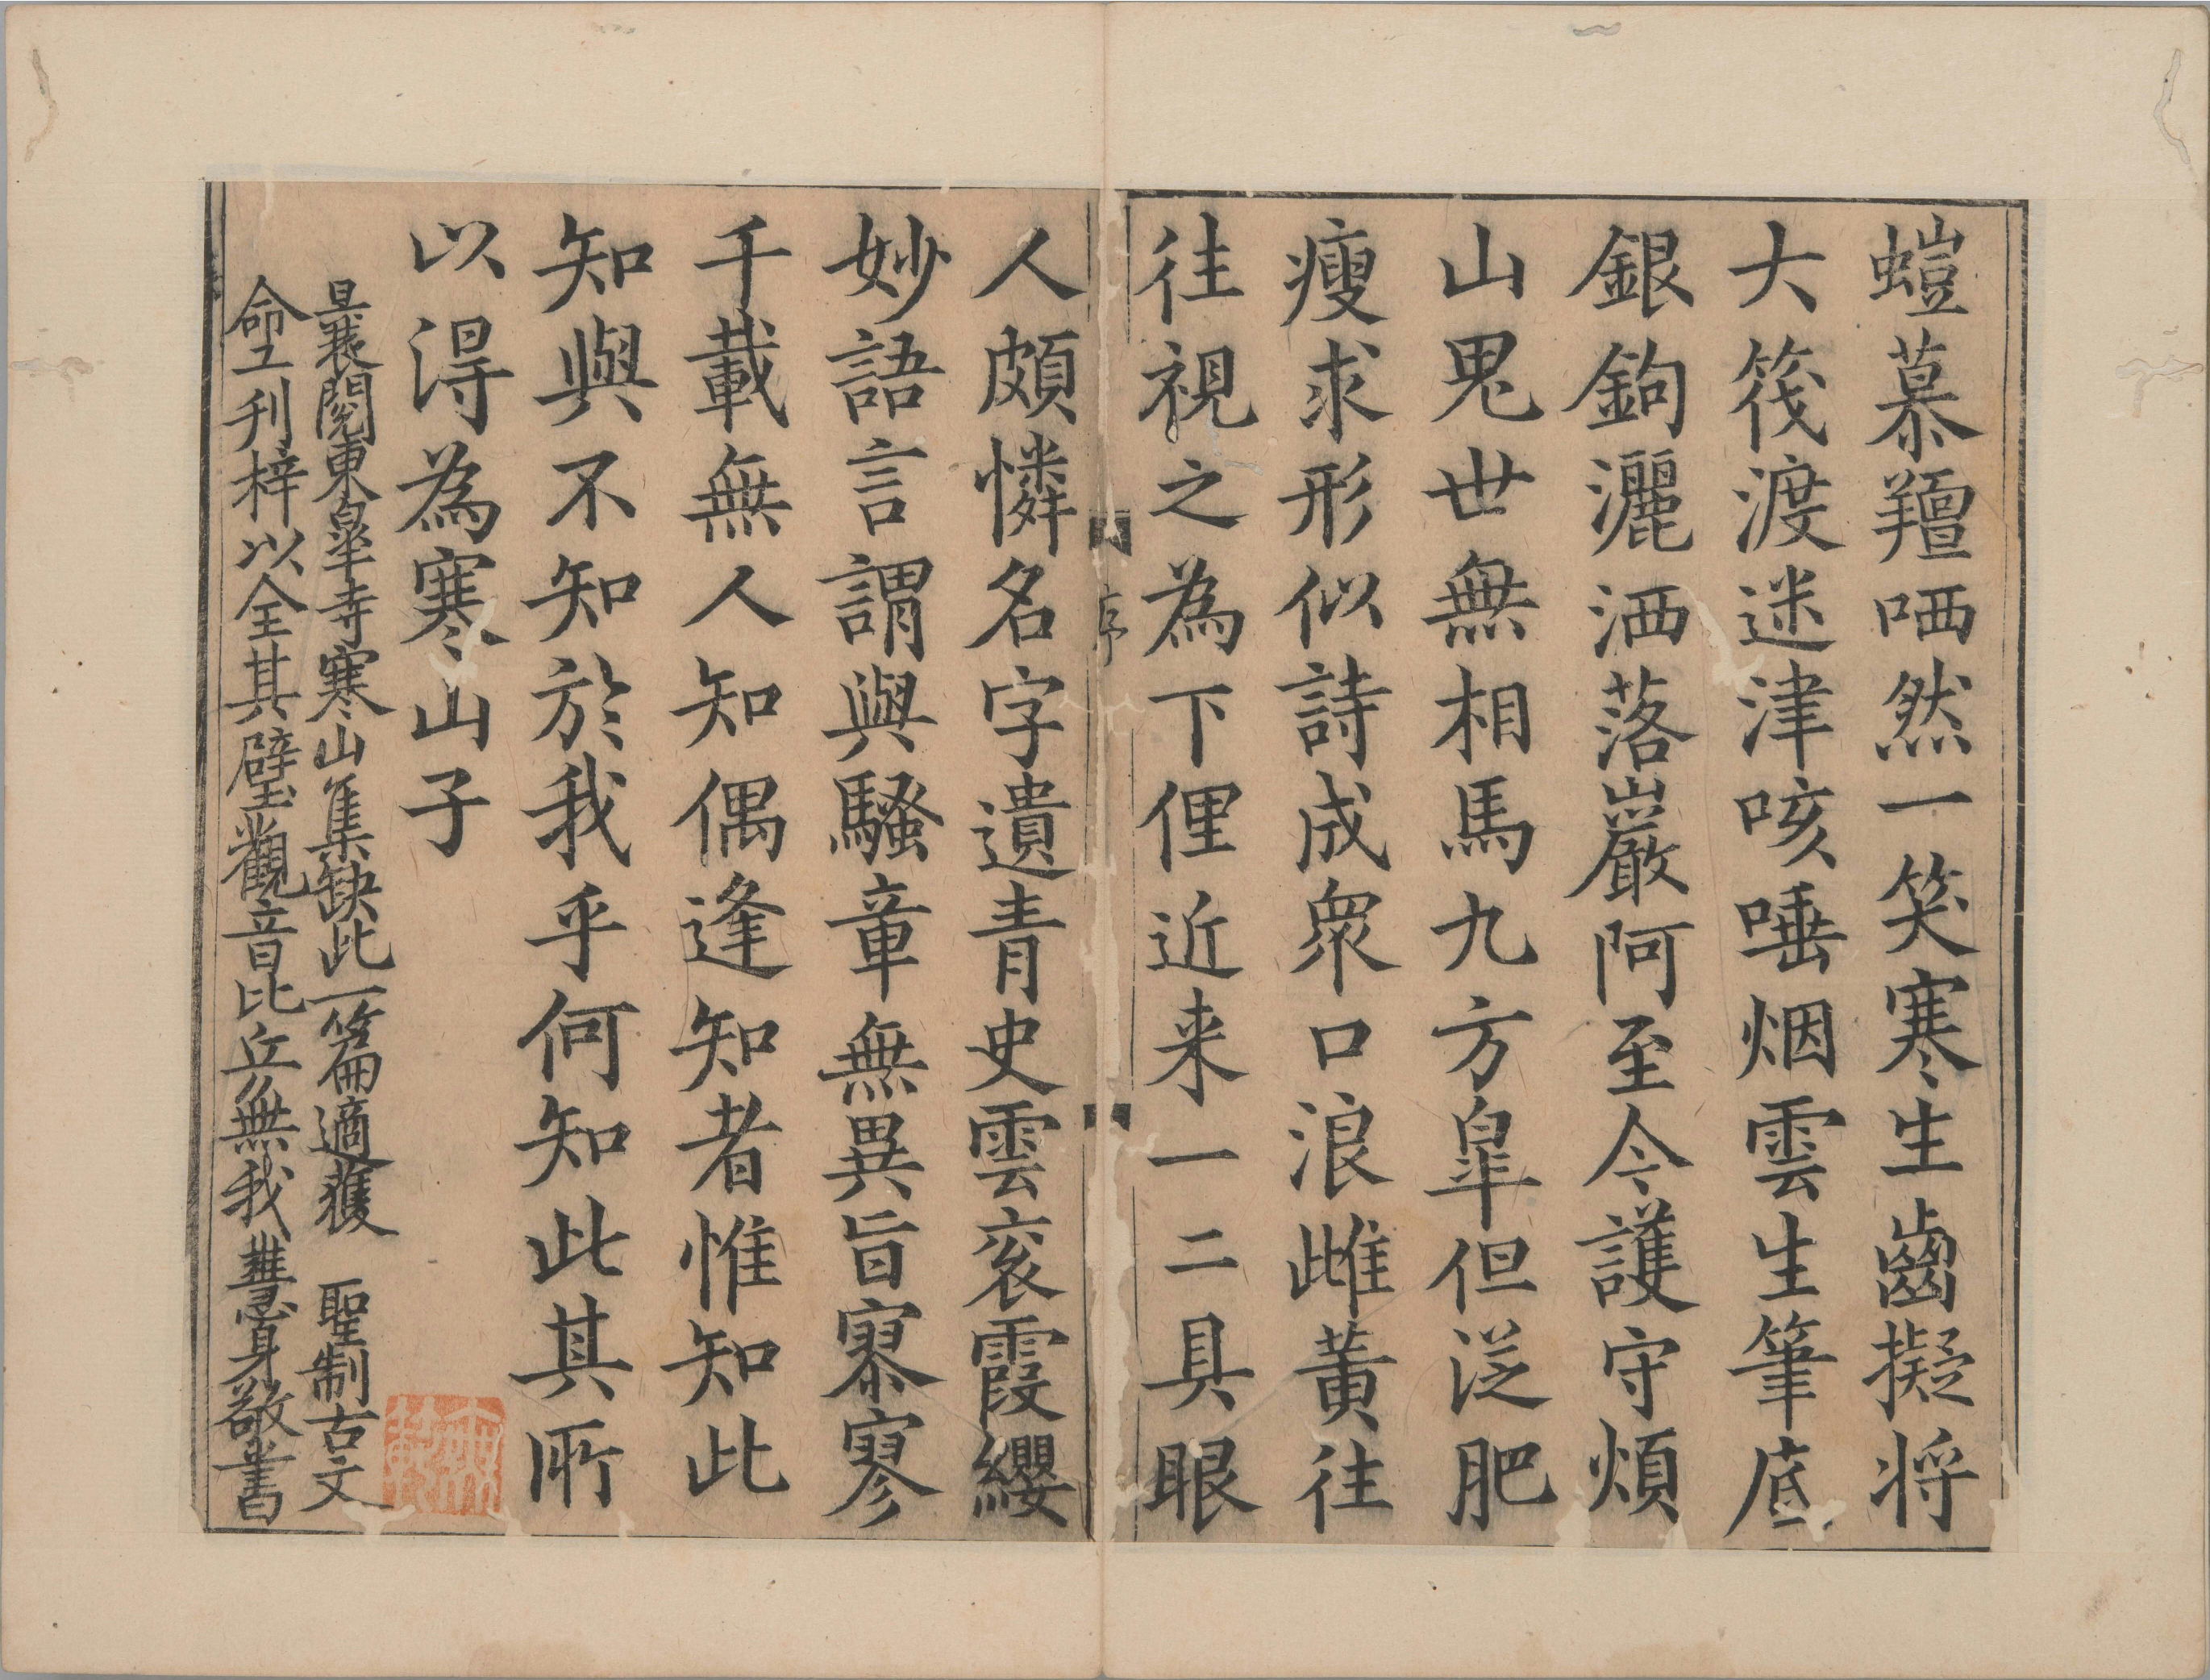 螘慕羶哂然一笑寒生齒擬将
大筏渡迷津咳唾烟雲生筆底
銀鉤灑洒落巖阿至今護守煩
山鬼世無相馬九方皐但泛肥
瘦求形似詩成衆口浪雌黄往
往視之為下俚近来一二具眼
序
人頗憐名字遺青史雲衮霞纓
妙語言謂與騷章無異旨寥寥
千載無人知偶逢知者惟知此
知與不知於我乎何知此其所
以得為寒山子
曩閱東皐寺寒山集缺此一篇適獲 聖制古文
命工刋梓以全其璧觀音比丘無我慧身敬書